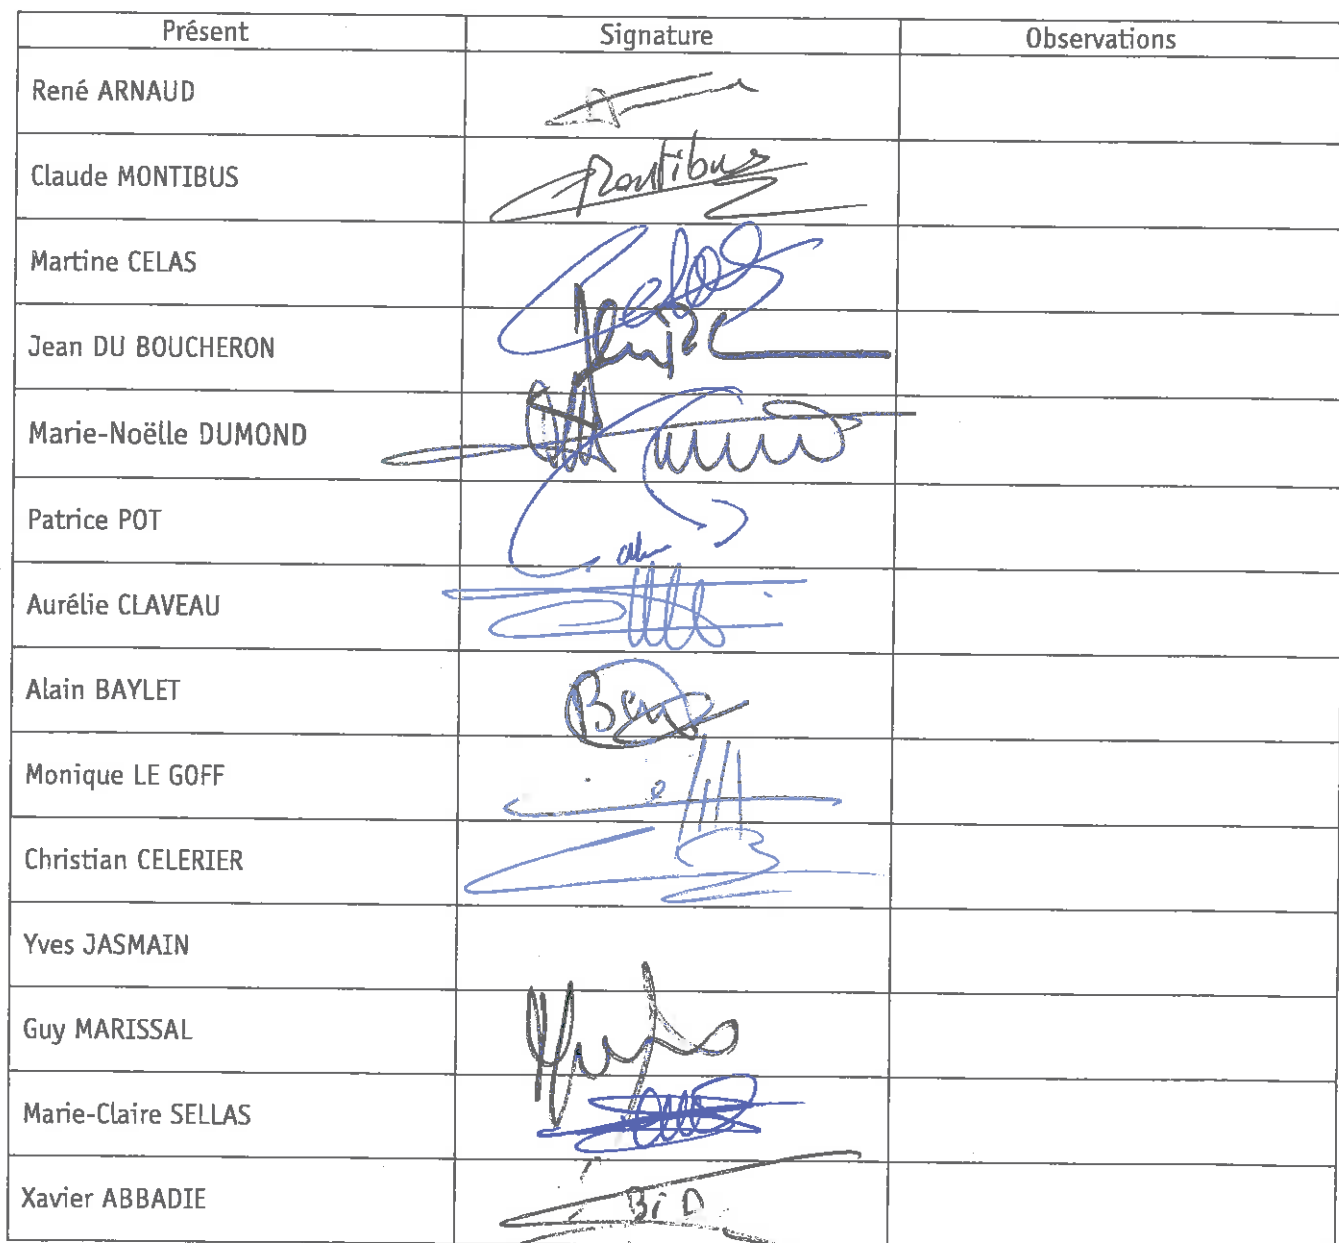 Présent Signature Observations
René ARNAUD
Claude MONTIBUS Montibus
Martine CELAS
Jean DU BOUCHERON
Marie-Noëlle DUMOND
Patrice POT
Aurélie CLAVEAU
Alain BAYLET
Monique LE GOFF
Christian CELERIER
Yves JASMAIN
Guy MARISSAL
Marie-Claire SELLAS
Xavier ABBADIE